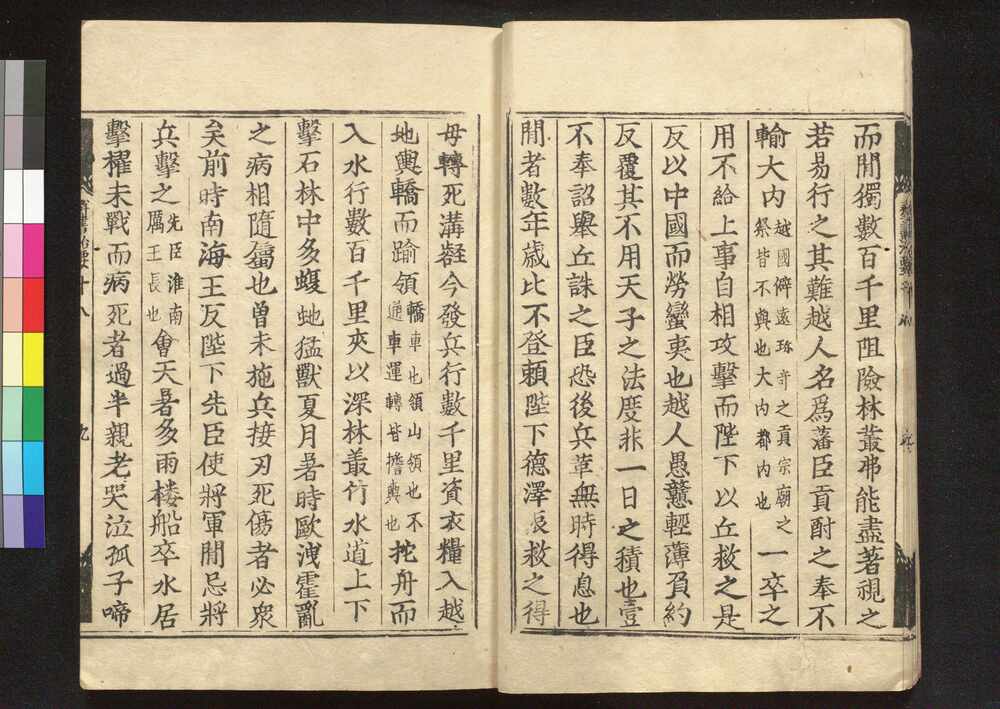 而間獨數百千里阻險林叢弗能盡著視之
若易行之其難越人名爲藩臣貢酎之奉不
輸大内越國僻遠珎奇之貢宗廟之祭皆不與也大内都内也一卒之
用不給上事自相攻擊而陛下以兵救之是
反以中國而勞蠻夷也越人愚戇輕薄負約
反覆其不用天子之法度非一日之積也壹
不奉詔舉兵誅之臣恐後兵革無時得息也
間者數年歳比不登賴陛下德澤振救之得
毋轉死溝壑今發兵行數千里資衣糧入越
地輿轎而踰領轎車也領山領也不通車運轉皆擔輿也拕舟而
入水行數百千里夾以深林叢竹水道上下
擊石林中多蝮虵猛獸夏月暑時歐洩霍亂
之病相隨屬也曽未施兵接刃死傷者必衆
矣前時南海王反陛下先臣使將軍間忌將
兵擊之先臣淮南厲王長也會天暑多雨楼船卒水居
擊櫂未戰而病死者過半親老哭泣孤子啼
群書治要十八
九